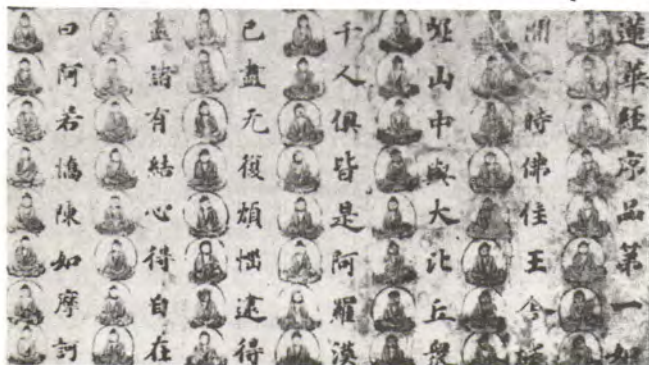 蓮華經序品第一如
聞一時佛住王舍城
崛山中與大比丘衆
千人俱皆是阿羅漢
已盡无復煩惱逮得
盡諸有結心得自在
曰阿若憍陳如摩訶